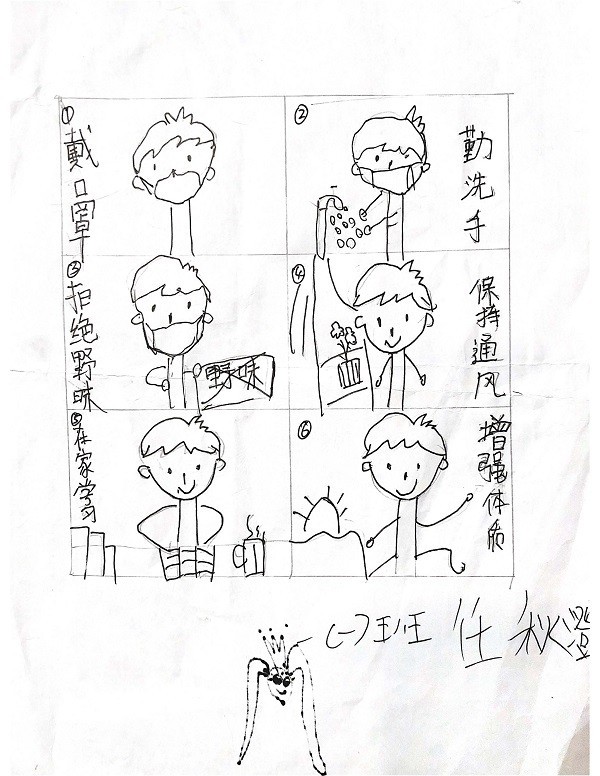 ①
戴口罩
②
勤洗手
③
拒绝野味
野味
④
保持通风
⑤
在家学习
⑥
增强体质
(一)班 任秋澄